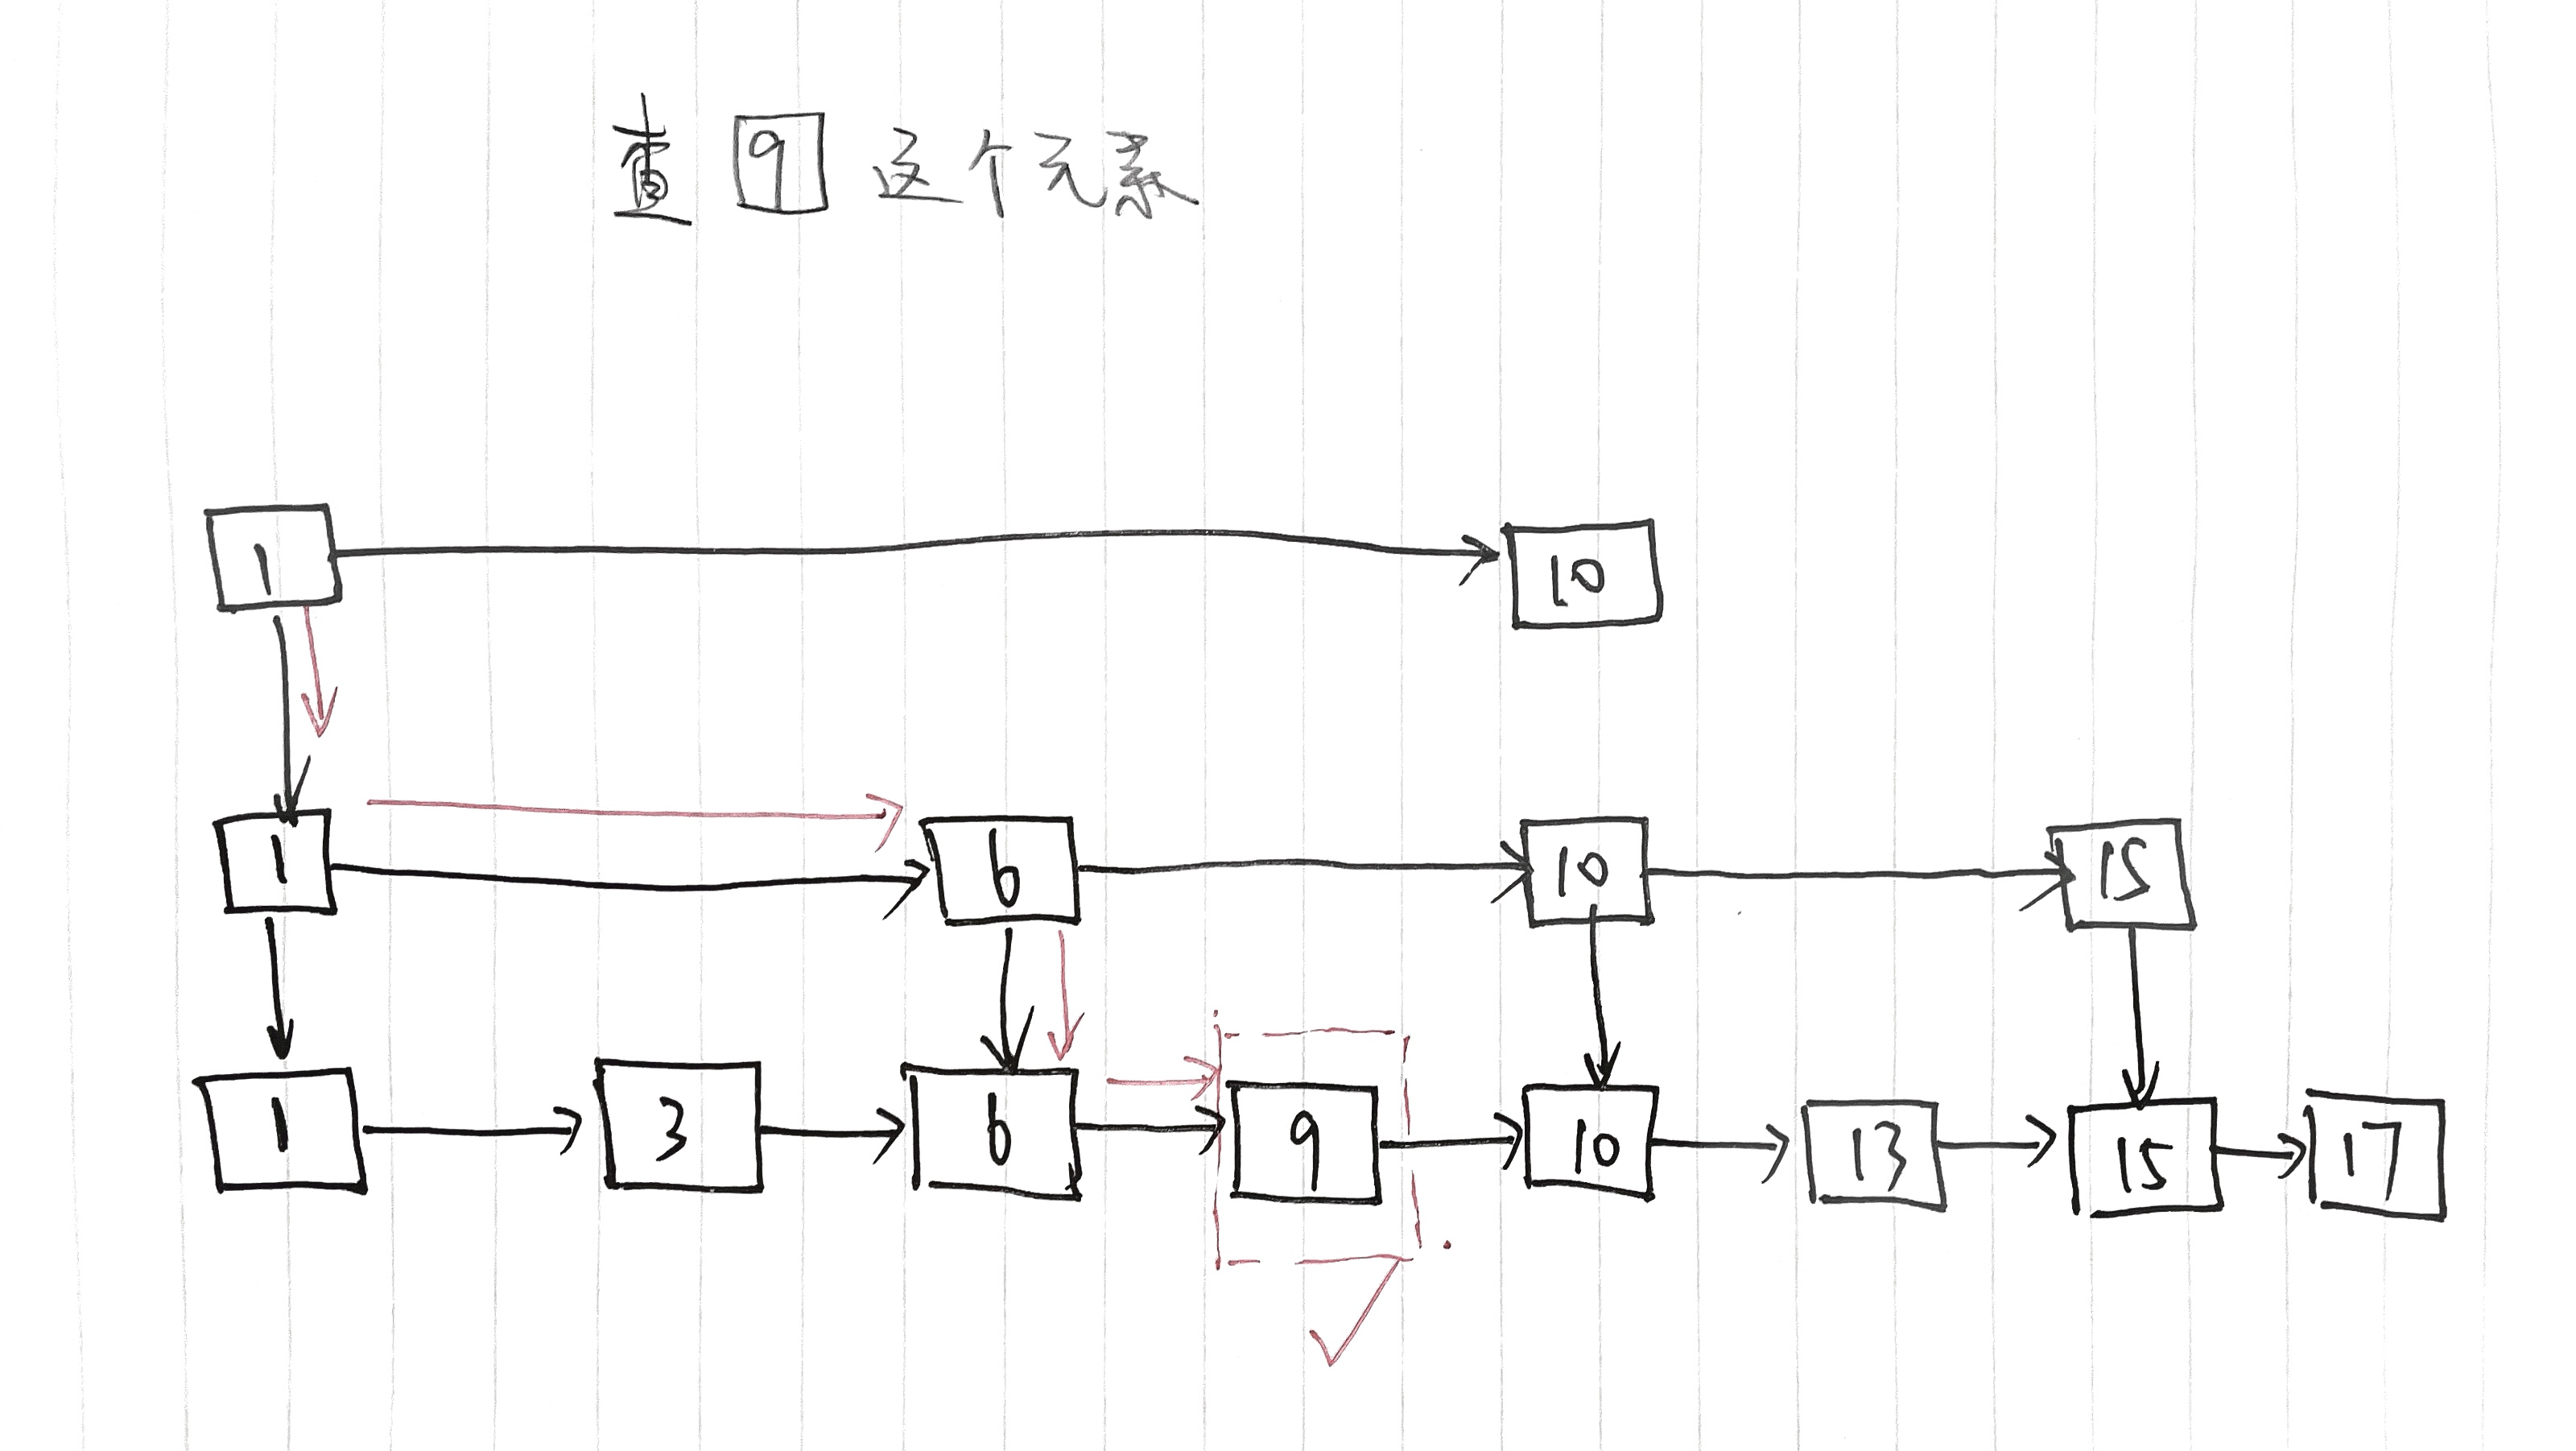 查 9 这个元素
1 10
1 6 10 15
1 3 6 9 10 13 15 17